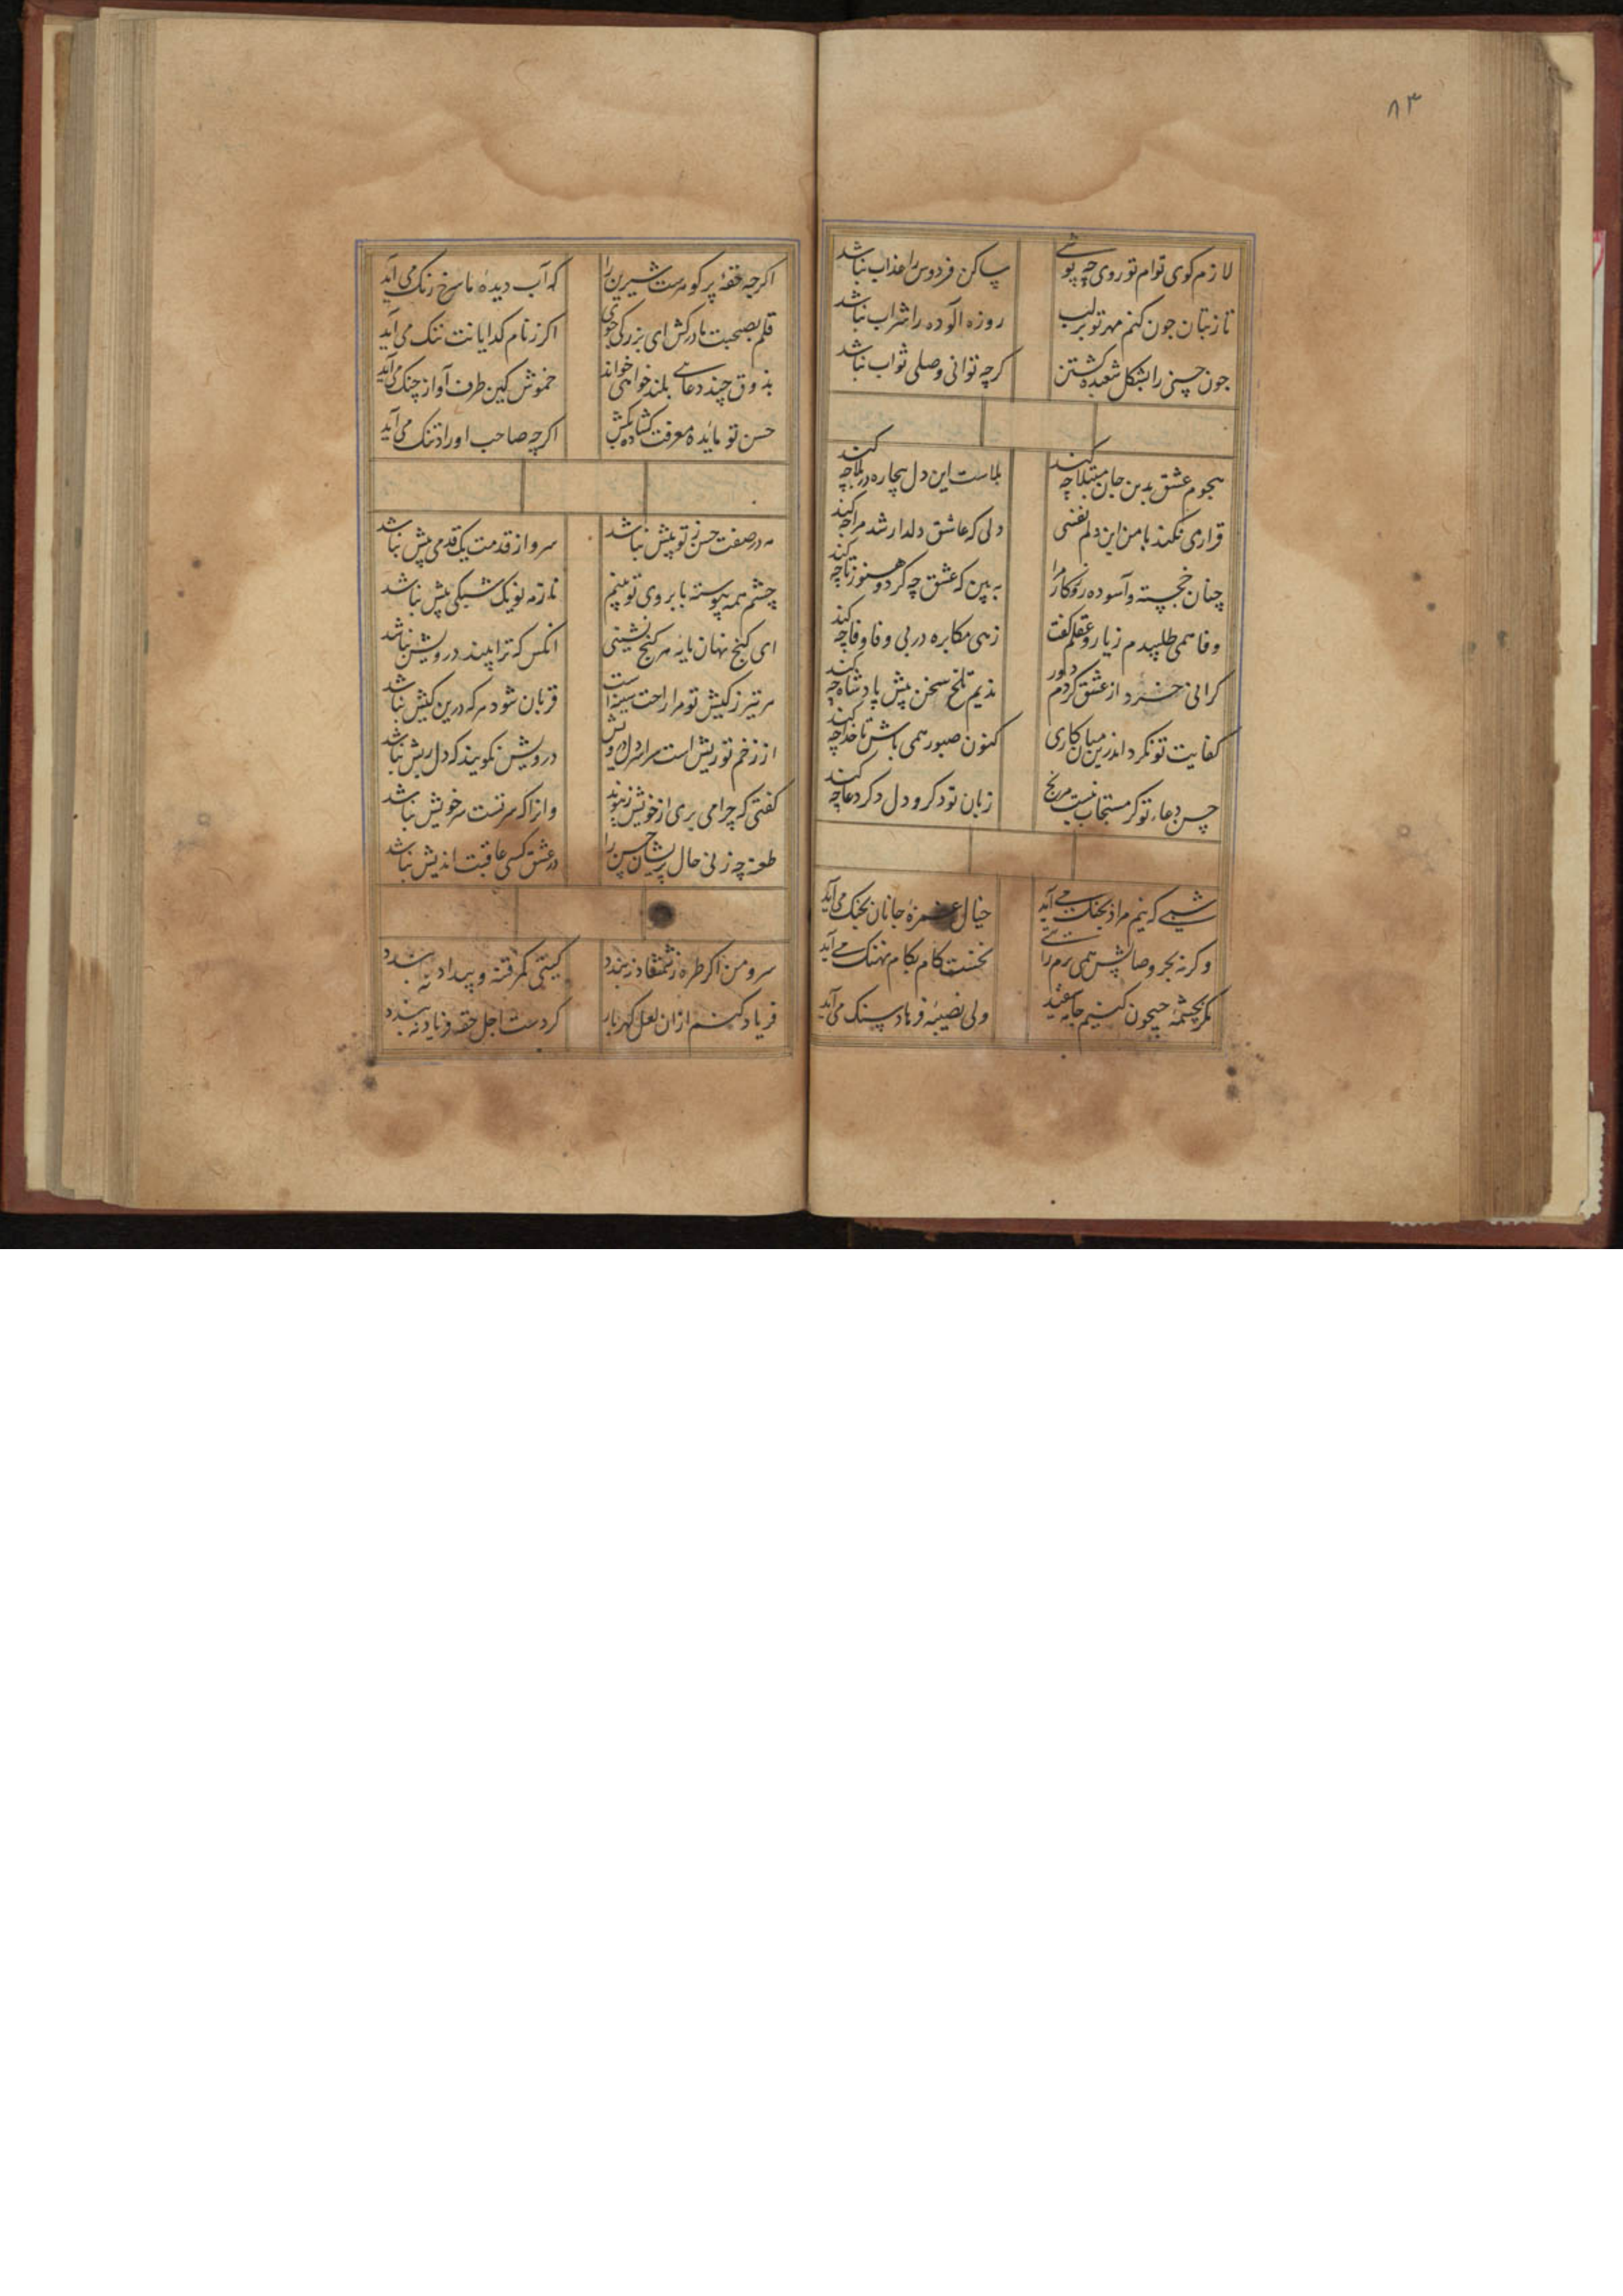 ٨٣
لازم کوی توام تو روی چه پوشی
ساکن فردوس را عذاب نباشد
تا ز بتان جون کنم مهر تو بر لب
روزه آلوده را شراب نباشد
جون حسنی را بشکل شعبده کشتن
کرچه توانی وصلی ثواب نباشد
هجوم عشق بدین جان مبتلا چه کند
بلاست این دل بیچاره در بلا چه کند
قراری نکند با من این دلم نفسی
دلی که عاشق دلدار شد مرا چه کند
چنان خجسته و آسوده روزکار مرا
به بین که عشق چه کرد و هنوز تا چه کند
وفا همی طلبیدم ز یار و عقلم کفت
زهی مکابره در بی وفا وفا چه کند
کرانی خرد از عشق کردم دور
ندیم تلخ سخن پیش پادشاه چه کند
کفایت تو نکرد اندرین میان کاری
کنون صبور همی باش تا خدا چه کند
حسن دعاء تو کر مستجاب نیست مرنج
زبان تو دکر و دل دکر دعا چه کند
شبی که نیم مرادی بچنک می آید
خیال غمزه جانان بجنک می آید
وکر به بحر وصالش همی برم راهی
نخست کام بکام نهنک می آید
مکر بچشمه جیحون کنیم جامه سفید
ولی نصیبه فرهاد سنک می آید
اکرچه حقه پر کوهرست شیرین را
که آب دیده ما سرخ رنک می آید
قلم بصحبت ما درکش ای بزرکی جوی
اکر ز نام کدایانت ننک می آید
بذوق چند دعای بلند خواهی خواند
خموش کین طرف آواز چنک می آید
حسن تو مایده معرفت کشاده بکش
اکرچه صاحب اوراد تنک می آید
مه در صفت حسن ز تو بیش نباشد
سرو از قدمت یک قدمی پیش نباشد
چشم همه پیوسته بابروی تو بینم
ای کنج نهان مایه هر کنج نشینی
انکس که ترا بیند درویش نباشد
هر تیر ز کیش تو مرا راحت سینه است
قربان شود هر که درین کیش نباشد
از زخم تو ریش است سراسر دل درویش
درویش نکویند که دل ریش نباشد
کفتی که چرا می بری از خویش ز پیوند
وانرا که سر تست سر خویش نباشد
طعنه چه زنی حال پریشان حسن را
در عشق کسی عاقبت اندیش نباشد
سرو من اکر طره ز شمشاد نبندد
کیتی کمر فتنه و بیداد نبندد
فریاد کنم از ان لعل کهربار
کر دست اجل حقه فریاد نبندد